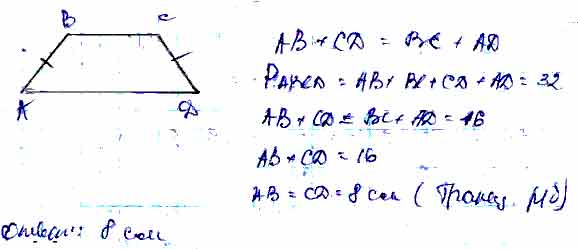 B C
A D
AB + CD = BC + AD
PABCD = AB + BC + CD + AD = 32
AB + CD = BC + AD = 16
AB + CD = 16
AB = CD = 8 см ( Трапец. р/б)
Ответ: 8 см